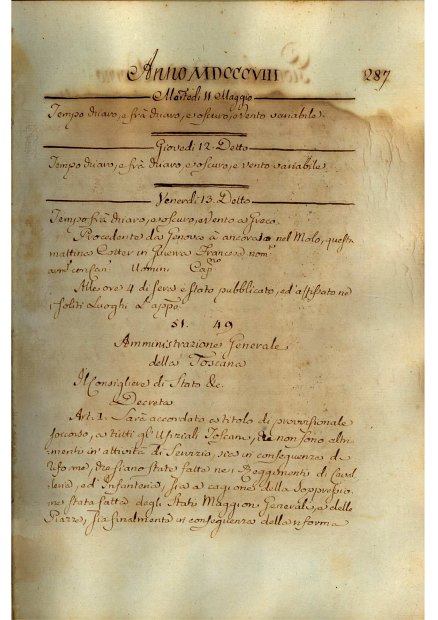 Anno MDCCCVIII 287
Martedi 11 Maggio
Tempo chiaro, e frà chiaro, e oscuro, e vento variabile.
Giovedi 12. Detto
Tempo chiaro, e frà chiaro, e oscuro, e vento variabile.
Venerdi 13. Detto
Tempo frà chiaro, e oscuro, e vento a Greco.
Procedente da Genova à ancorato nel Molo, questa
mattina Cotter in Guerra Francese nom.
con Uomini Cap.
Alle ore 4 di sera è stato pubblicato, ed'affissato ne
soliti Luoghi L'appo
51. 49
Amministrazione Generale
della Toscana
Il Consigliere di Stato &c.
Decreta
Art. 1. Sarà accordato a titolo di provvisionale
soccorso, a tutti gl'Ufiziali Toscani, che non sono altri-
menti in attività di Servizio, sia in conseguenza di
riforme, che siano state fatte nei Reggimenti di Caval-
leria, ed'Infanteria, sia a cagione della soppressio-
ne stata fatta degli Stati Maggiori Generali, e delle
Piazze, sia finalmente in conseguenza della riforma